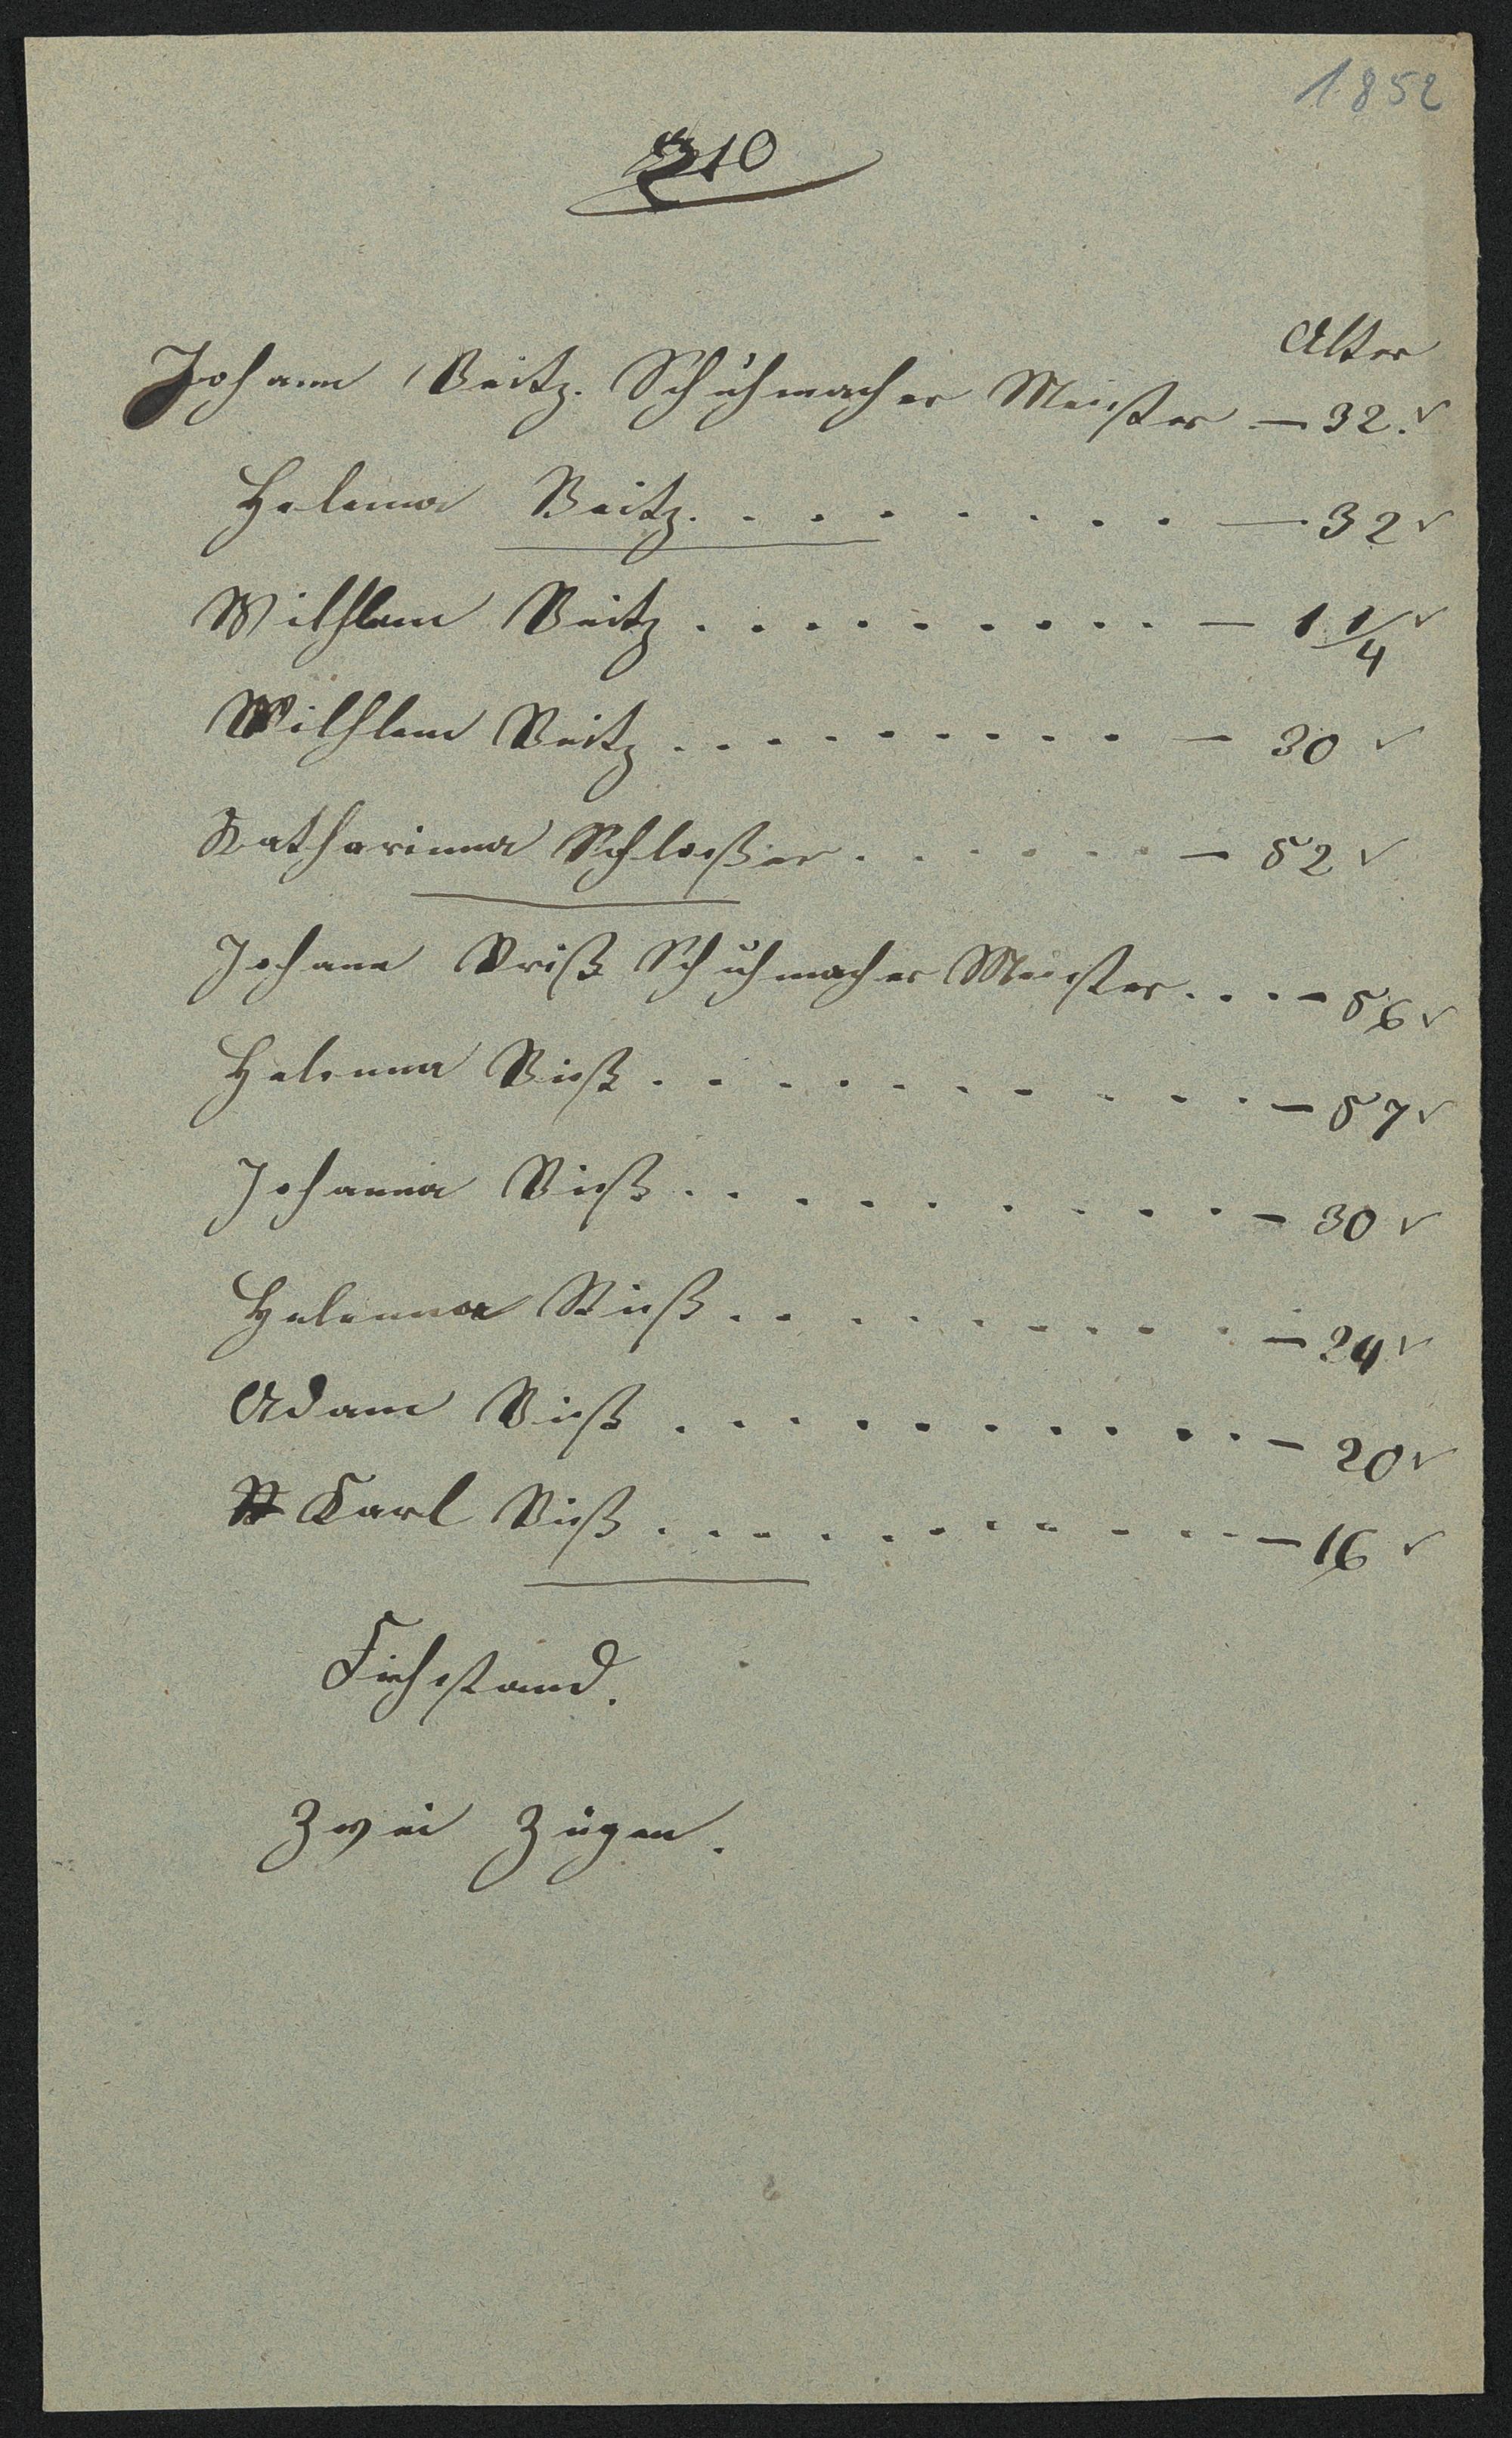 1852
210
Alter
Johann Veitz. Schuhmacher Meister — 32. ✓
Helena Veitz. . . . . . . . . — 32 ✓
Wilhlem Veitz . . . . . . . . . . — 1 1/4 ✓
Wilhlem Veitz . . . . . . . . . . — 30 ✓
Katharinna Schloßer . . . . . . — 52 ✓
Johann Schuhmacher Meister . . . — 56 ✓
Helenna Vieß . . . . . . . . . . — 57 ✓
Johanna Vieß . . . . . . . . . . — 30 ✓
Helenna Vieß . . . . . . . . . — 24 ✓
Adam Vieß . . . . . . . . . . — 20 ✓
Karl Vieß . . . . . . . . . . — 16 ✓
Fiehstand.
Zwei Zigen.